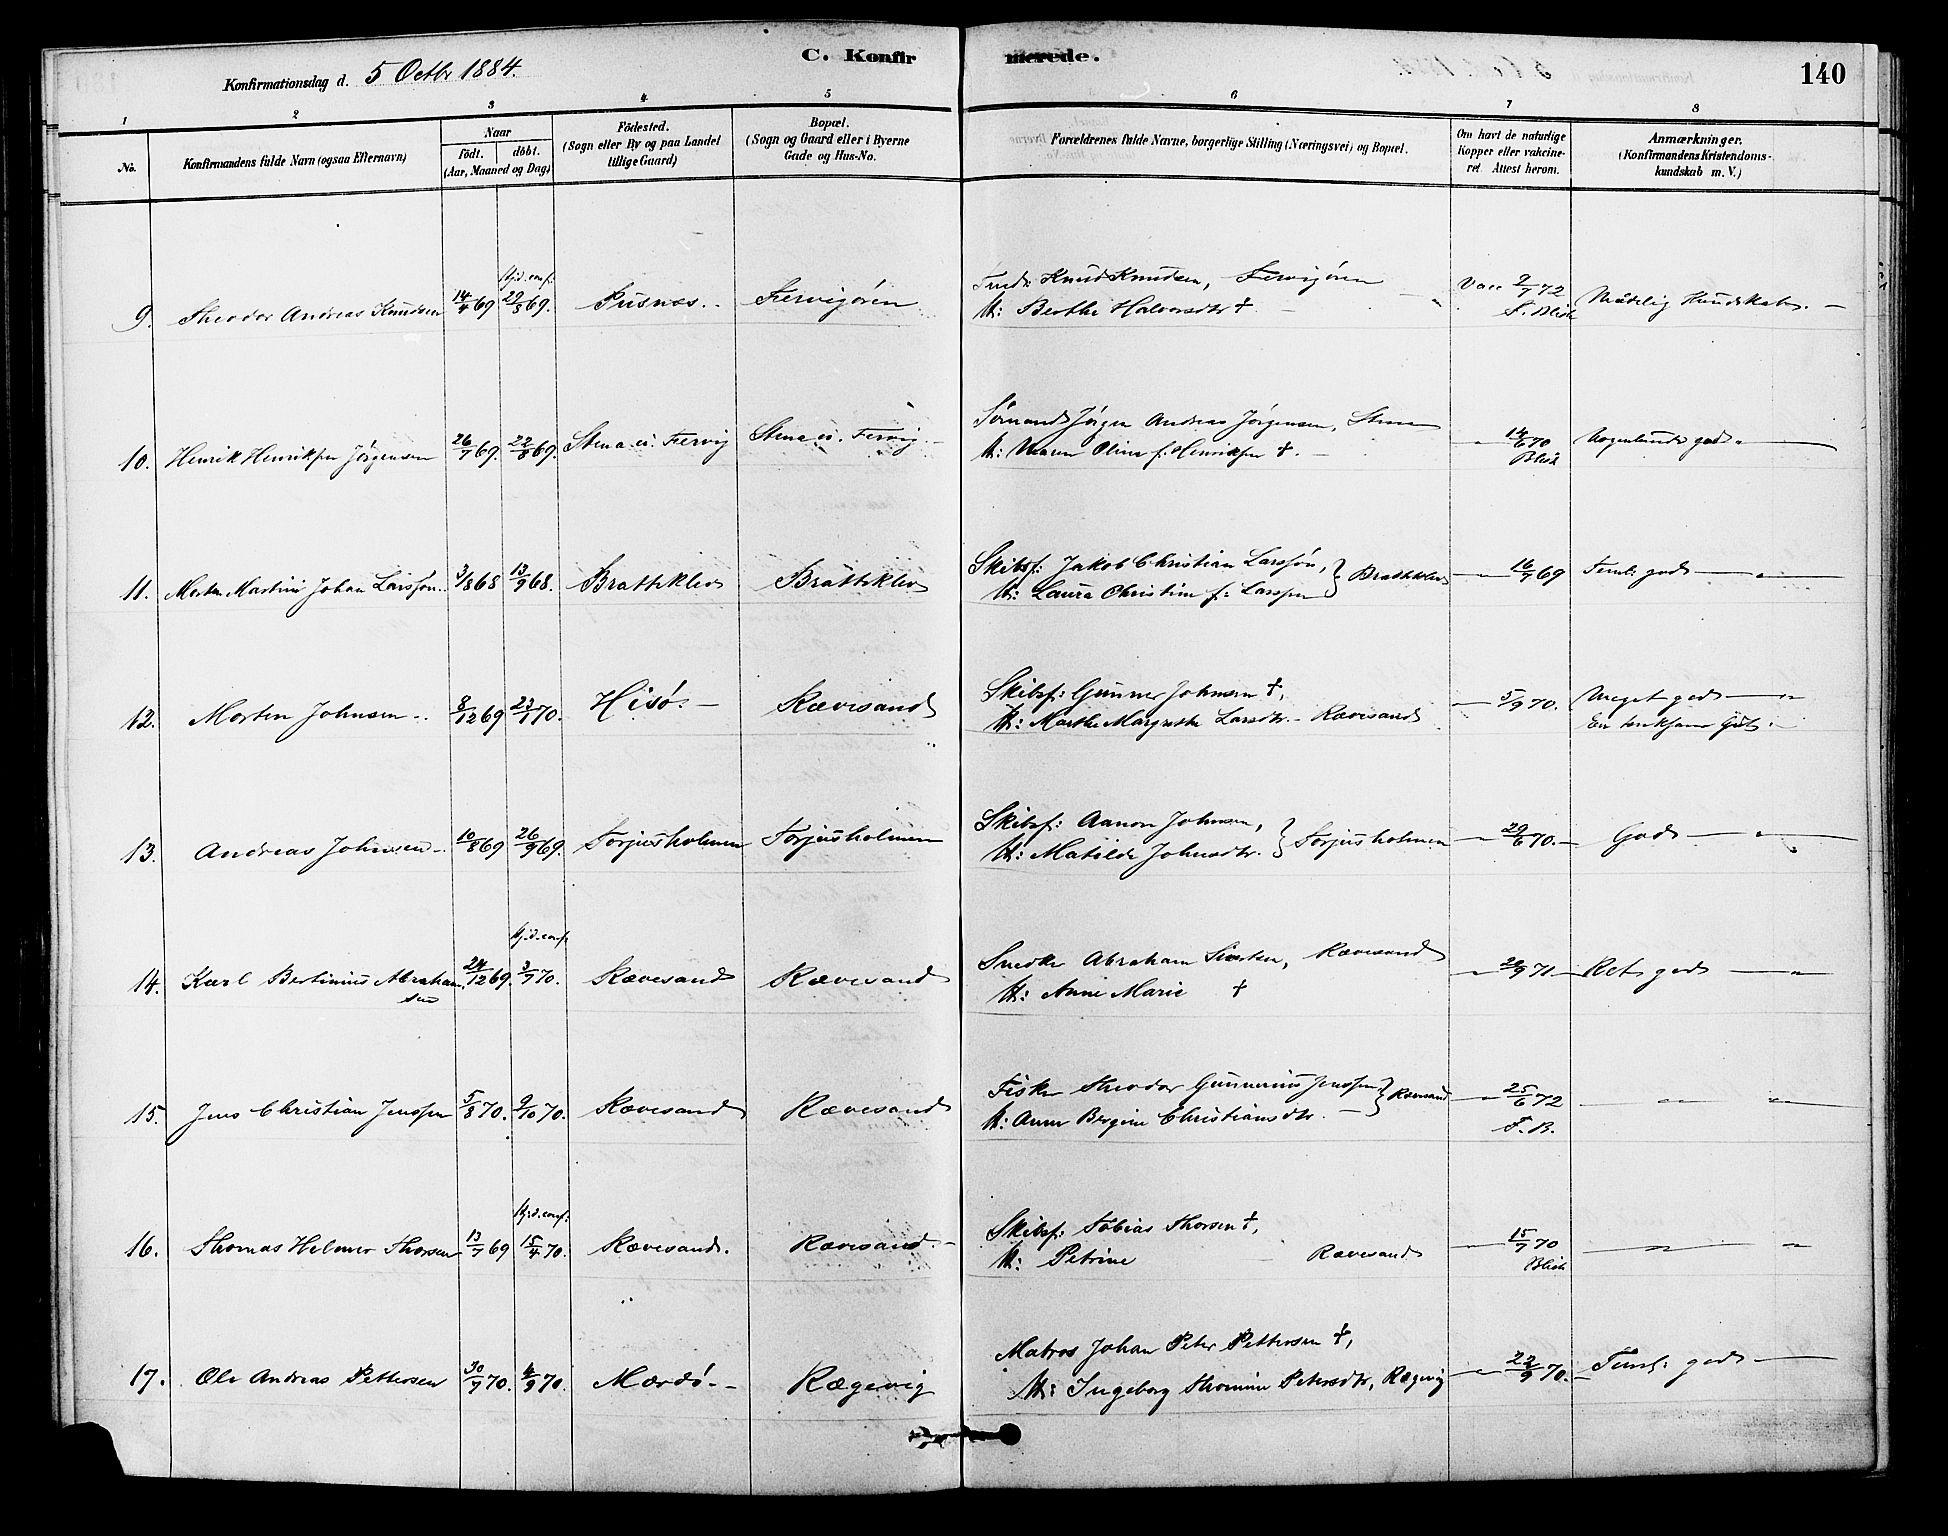 C. Konfirmerede.
140
Konfirmationsdag d. 5 Octbr 1884.
1 2 3 4 5 6 7 8
No.
Konfirmandens fulde Navn (ogsaa Efternavn)
Naar
födt. döbt.
(Aar, Maaned og Dag)
Födested.
(Sogn eller By og paa Landet
tillige Gaard)
Bopæl.
(Sogn og Gaard eller i Byerne
Gade og Hus-No.
Forældrenes fulde Navne, borgerlige Stilling (Næringsvei) og Bopæl.
Om havt de naturlige
Kopper eller vakcine-
ret. Attest herom.
Anmærkninger.
(Konfirmandens Kristendoms-
kundskab m. V.)
9. Theodor Andreas Knudsen 14/4 69 Hjd. conf. 29/8 69. Pusnæs. Fervigören
Knud Knudsen, Fervigören
M: Berthe Halvorsdtr †
Vacc 9/7 72
F. Blich
Maadelig Kundskab. —
10. Henrik Henriksen Jörgensen 26/7 69. 22/8 69. Stena ei. Fervig Stena ei. Fervig
Sömand Jörgen Andreas Jörgensen, Stena
M: Maren Oline f: Henriksen †.
14/6 70
Blich
Nogenlunde god
11. Morten Martin Johan Larssön 3/8 68 13/9 68. Bratteklev Bratteklev
Skibsf: Jakob Christian Larssön,
M: Laura Christine f: Larssen } Bratteklev
16/7 69
Teml: god — " —
12. Morten Johnsen 8/12 69 23/1 70. Hisö. — Rævesand
Skibsf: Gunner Johnsen †,
M: Marthe Margrethe Larsdtr. Rævesand
5/9 70.
Meget god — "
En tænksom Gut.
13. Andreas Johnsen 10/8 69 26/9 69. Torjusholmen Torjusholmen
Skibsf: Aanon Johnsen,
M: Matilde Johnsdtr. } Torjusholmen
29/6 70.
God — " —
14. Karl Bertinius Abraham
sen 24/12 69. Hj. d. conf 3/7 70. Rævesand Rævesand
Snedker Abraham Sivertsen, Rævesand
M: Anne Marie †
29/9 71
Ret god — "
15. Jens Christian Jenssen 5/8 70. 9/10 70. Rævesand Rævesand
Fisker Theodor Gunnerius Jenssen
M: Anne Bergine Christiansdtr. } Rævesand
25/6 72
F. B.
— " — "
16. Thomas Helmer Thorsen 13/7 69 Hj: d. conf: 15/4 70. Rævesand. Rævesand.
Skibsf: Tobias Thorsen †,
M: Petrine Rævesand
15/7 70
Blich
— " — "
17. Ole Andreas Pettersen 30/7 70. 4/9 70. Mærdö. — Rægevig
Matros Johan Peter Pettersen †,
M: Ingeborg Thomine Petersdtr, Rægevig
22/9 70.
Teml: god —